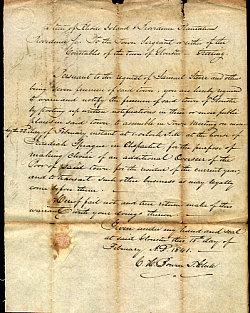 State of Rhode Island & Providence Plantations
Providence Sc. To the Town Sergeant or either of the
Constables of the town of Gloucester Greeting
Pursuant to the request of Samuel Steere and others
being seven freemen of said town, you are hereby required
to warn and notify the freemen of said town of Gloucester
by posting up written notifications in three or more public
places in said town to assemble in Town Meeting on
day of February instant at 1 o'clock P.M. at the house of
Jeradiah Sprague in Chepachet, for the purpose of
making choice of an additional Overseer of the
Poor of said town for the remainder of the current year
and to transact such other business as may legally
come before them.
Hereof fail not and true return make of this
warrant with your doings thereon
Given under my hand and seal
at said Gloucester this 15th day of
February A.D. 1841.
Clerk